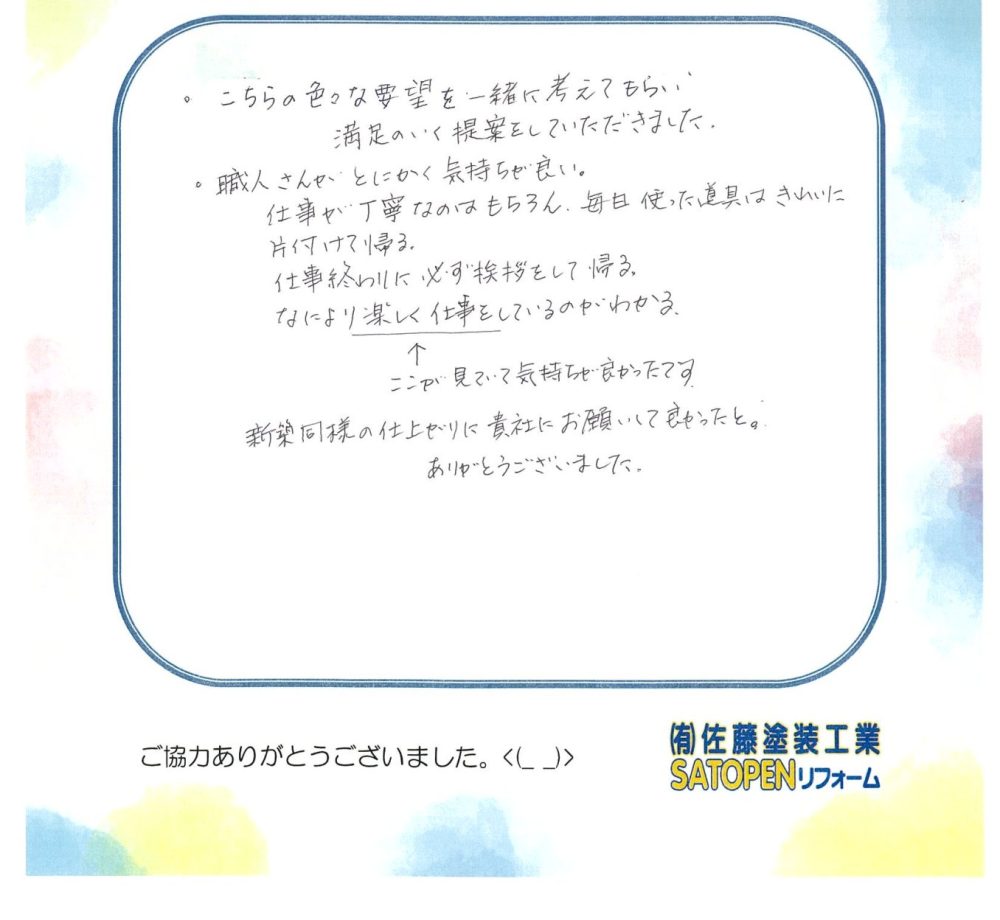 。こちらの色々な要望を一緒に考えてもらい
満足のいく提案をしていただきました.
。職人さんが とにかく気持ちが良い。
仕事が丁寧なのはもちろん、毎日使った道具はきれいに
片付けて帰る.
仕事終わりに必ず挨拶をして帰る.
なにより楽しく仕事をしているのがわかる.
↑
ここが見ていて気持ちが良かったです
新築同様の仕上がりに貴社にお願いして良かったと。
ありがとうございました.
ご協力ありがとうございました。<(_ _)>
㈲佐藤塗装工業
SATOPENリフォーム